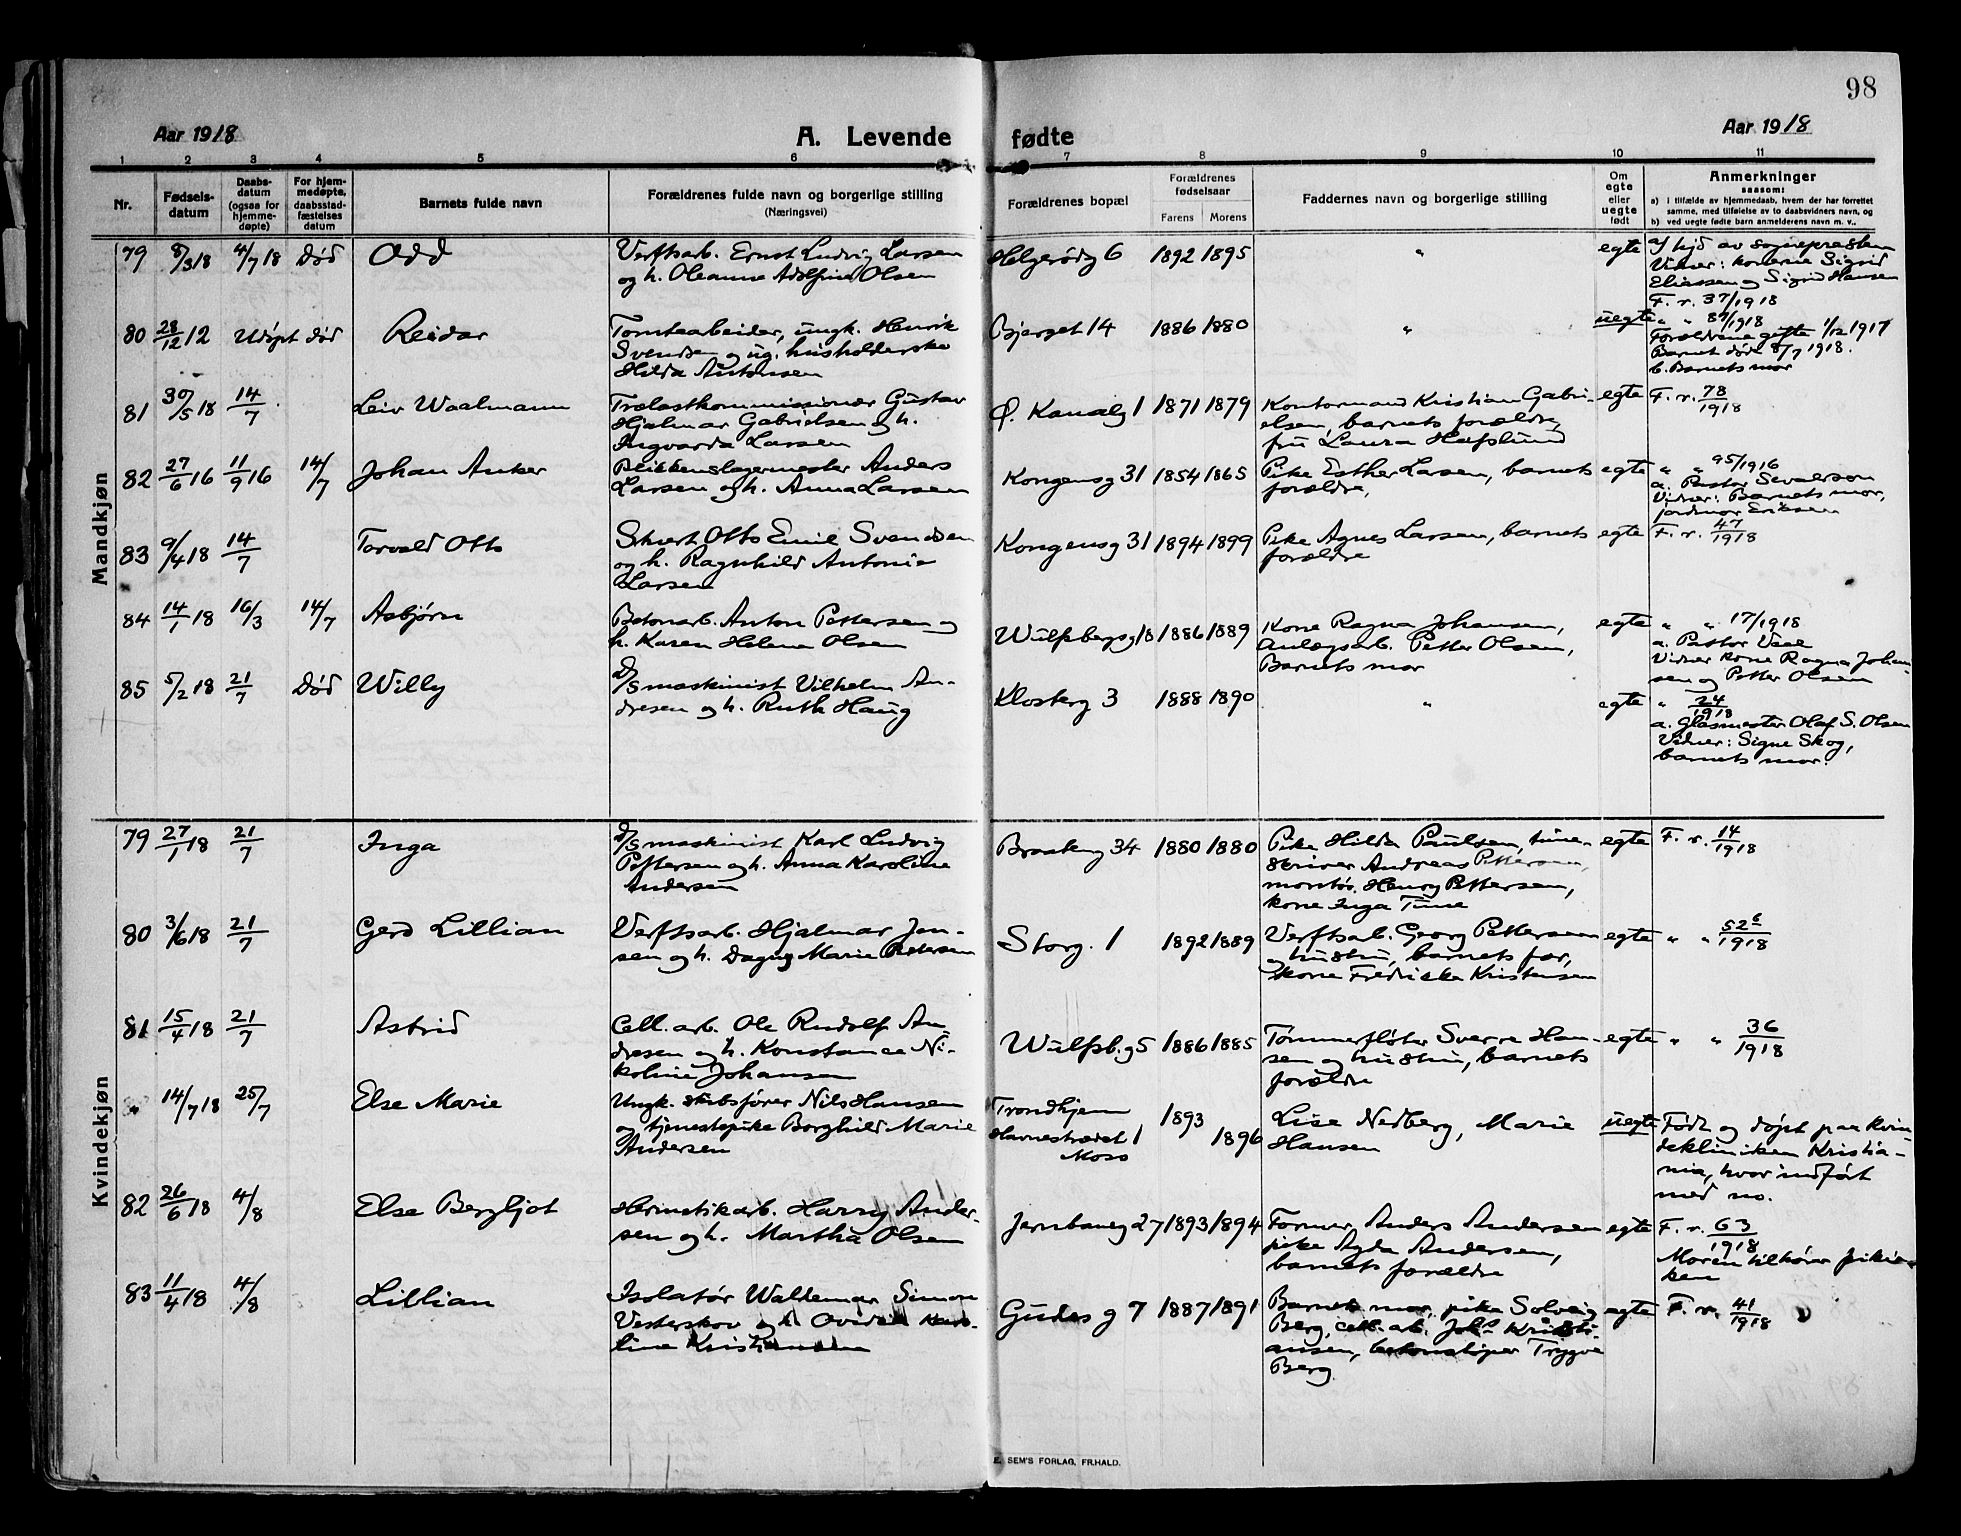 98
Aar 1918 A. Levende fødte Aar 1918
1 2 3 4 5 6 7 8 9 10 11
Nr.
Fødsels-
datum
Daabs-
datum
(ogsaa for
hjemme-
døpte)
For hjem-
medøpte,
daabsstad-
fæstelses
datum
Barnets fulde navn
Forældrenes fulde navn og borgerlige stilling
(Næringsvei)
Forældrenes bopæl
Forældrenes
fødselsaar
Farens Morens
Faddernes navn og borgerlig stilling
Om
egte
eller
uegte
født
Anmerkninger
saasom:
a) i tilfælde av hjemmedaab, hvem der har forrettet
samme, med tilføielse av to daabsvidners navn, og
b) ved uegte fødte barn anmelderens navn m. v..
Mandkjøn
79 8/3 18 4/7 18 Død Odd
Verftsarb. Ernst Ludvig Larsen
og h. Oleanna Adolfine Olsen
Helgerødg 6 1892 1895 " egte
a/ hjd av sognepresten
Vidner: konerne Sigrid
Eliassen og Sigrid Hansen
F. r. 37/1918
80 28/12 12 Udøpt død Reidar
Tomtearbeider, ungk. Henrik
Svendsen og ug. husholderske
Hilda Antonsen
Bjerget 14 1886 1880 " uegte
" " 87/1918
Forældrene gifte 1/12 1917
Barnet døde 8/7 1918.
b. Barnets mor
81 30/5 18 14/7 Leiv Waalmann
Trælastkommissionær Gustav
Hjalmar Gabrielsen og h.
Ingvarda Larsen
Ø. Kanalg 1 1871 1879
Kontormand Kristian Gabri-
elsen, barnets forældre,
fru Laura Hafslund
egte F. r. 78/1918
82 27/6 16 11/9 16 14/7 Johan Anker
Blikkenslagermester Anders
Larsen og h. Anna Larsen
Kongensg 31 1854 1865
Pike Esther Larsen, barnets
forældre,
egte " " 95/1916
a. Pastor Sevalerson
Vidner: Barnets mor,
jordmor Eriksen
83 9/4 18 14/7 Torvald Otto
Stuert Otto Emil Svendsen
og h. Ragnhild Antonie
Larsen
Kongensg 31 1894 1899
Pike Agnes Larsen, barnets
forældre
egte F. r. 47/1918
84 14/1 18 16/3 14/7 Asbjørn
Betonarb. Anton Pettersen og
h. Karen Helena Olsen
Wulfsbergsg 18 1886 1889
Kone Ragna Johansen,
Anlægsarb. Petter Olsen,
Barnets mor
egte " " 17/1918
a. Pastor Vaal
Vidner kone Ragna Johan-
sen og Petter Olsen
85 5/2 18 21/7 Død Willy
D/S maskinist Vilhelm An-
dresen og h. Ruth Haug
Klosterg 3 1888 1890 " egte
" 24/1918
a. Glasmester Olaf S. Olsen
Vidner: Signe Skog,
barnets mor.
Kvindekjøn
79 27/1 18 21/7 Inga
D/S maskinist Karl Ludvig
Pettersen og h. Anna Karoline
Andersen
Braateng 34 1880 1880
Pike Hilda Paulsen, time-
skriver Andreas Pettersen,
montør Henry Pettersen,
kone Inga Time
egte F. r. 14/1918
80 3/6 18 21/7 Gerd Lillian
Verftsarb. Hjalmar Jen-
sen og h. Dagny Marie Pettersen
Storg. 1 1892 1889
Verftsarb. Georg Pettersen
og hustru, barnets far,
kone Fredrikke Kristensen
egte " " 52 6/1918
81 15/4 18 21/7 Astrid
Cell. arb. Ole Rudolf An-
dresen og h. Konstance Ni-
koline Johansen
Wulfsb.g 5 1886 1885
Tømmerfløter Sverre Han-
sen og hustru, barnets
forældre
egte " " 36/1918
" 14/7 18 25/7 Else Marie
Ungk. skibsfører Nils Hansen
og tjenestepike Borghild Marie
Andersen
Trondhjem
Havnestrædet 1
Moss
1893 1896
Lise Nedberg, Marie
Hansen
uegte
Født og døpt paa Kvin-
deklinikken Kristia-
nia, hvor indført
med no.
82 26/6 18 4/8 Else Bergljot
Hermetikarb. Harry Ander-
sen og h. Martha Olsen
Jernbaneg 27 1893 1894
Former Anders Andersen
pike Agda Andersen,
barnets forældre
egte F. r. 63/1918
Moren tilhører frikir-
ken
83 11/4 18 4/8 Lillian
Isolatør Waldemar Simon
Vesterskov og h. Ovidia Karo-
line Kristiansen
Gudes g 7 1887 1891
Barnets mor, pike Solveig
Berg, cell. arb. Johs Kristi-
ansen, betonstøper Trygve
Berg
egte F. r. 41/1918
E. SEM'S FORLAG, FR.HALD.